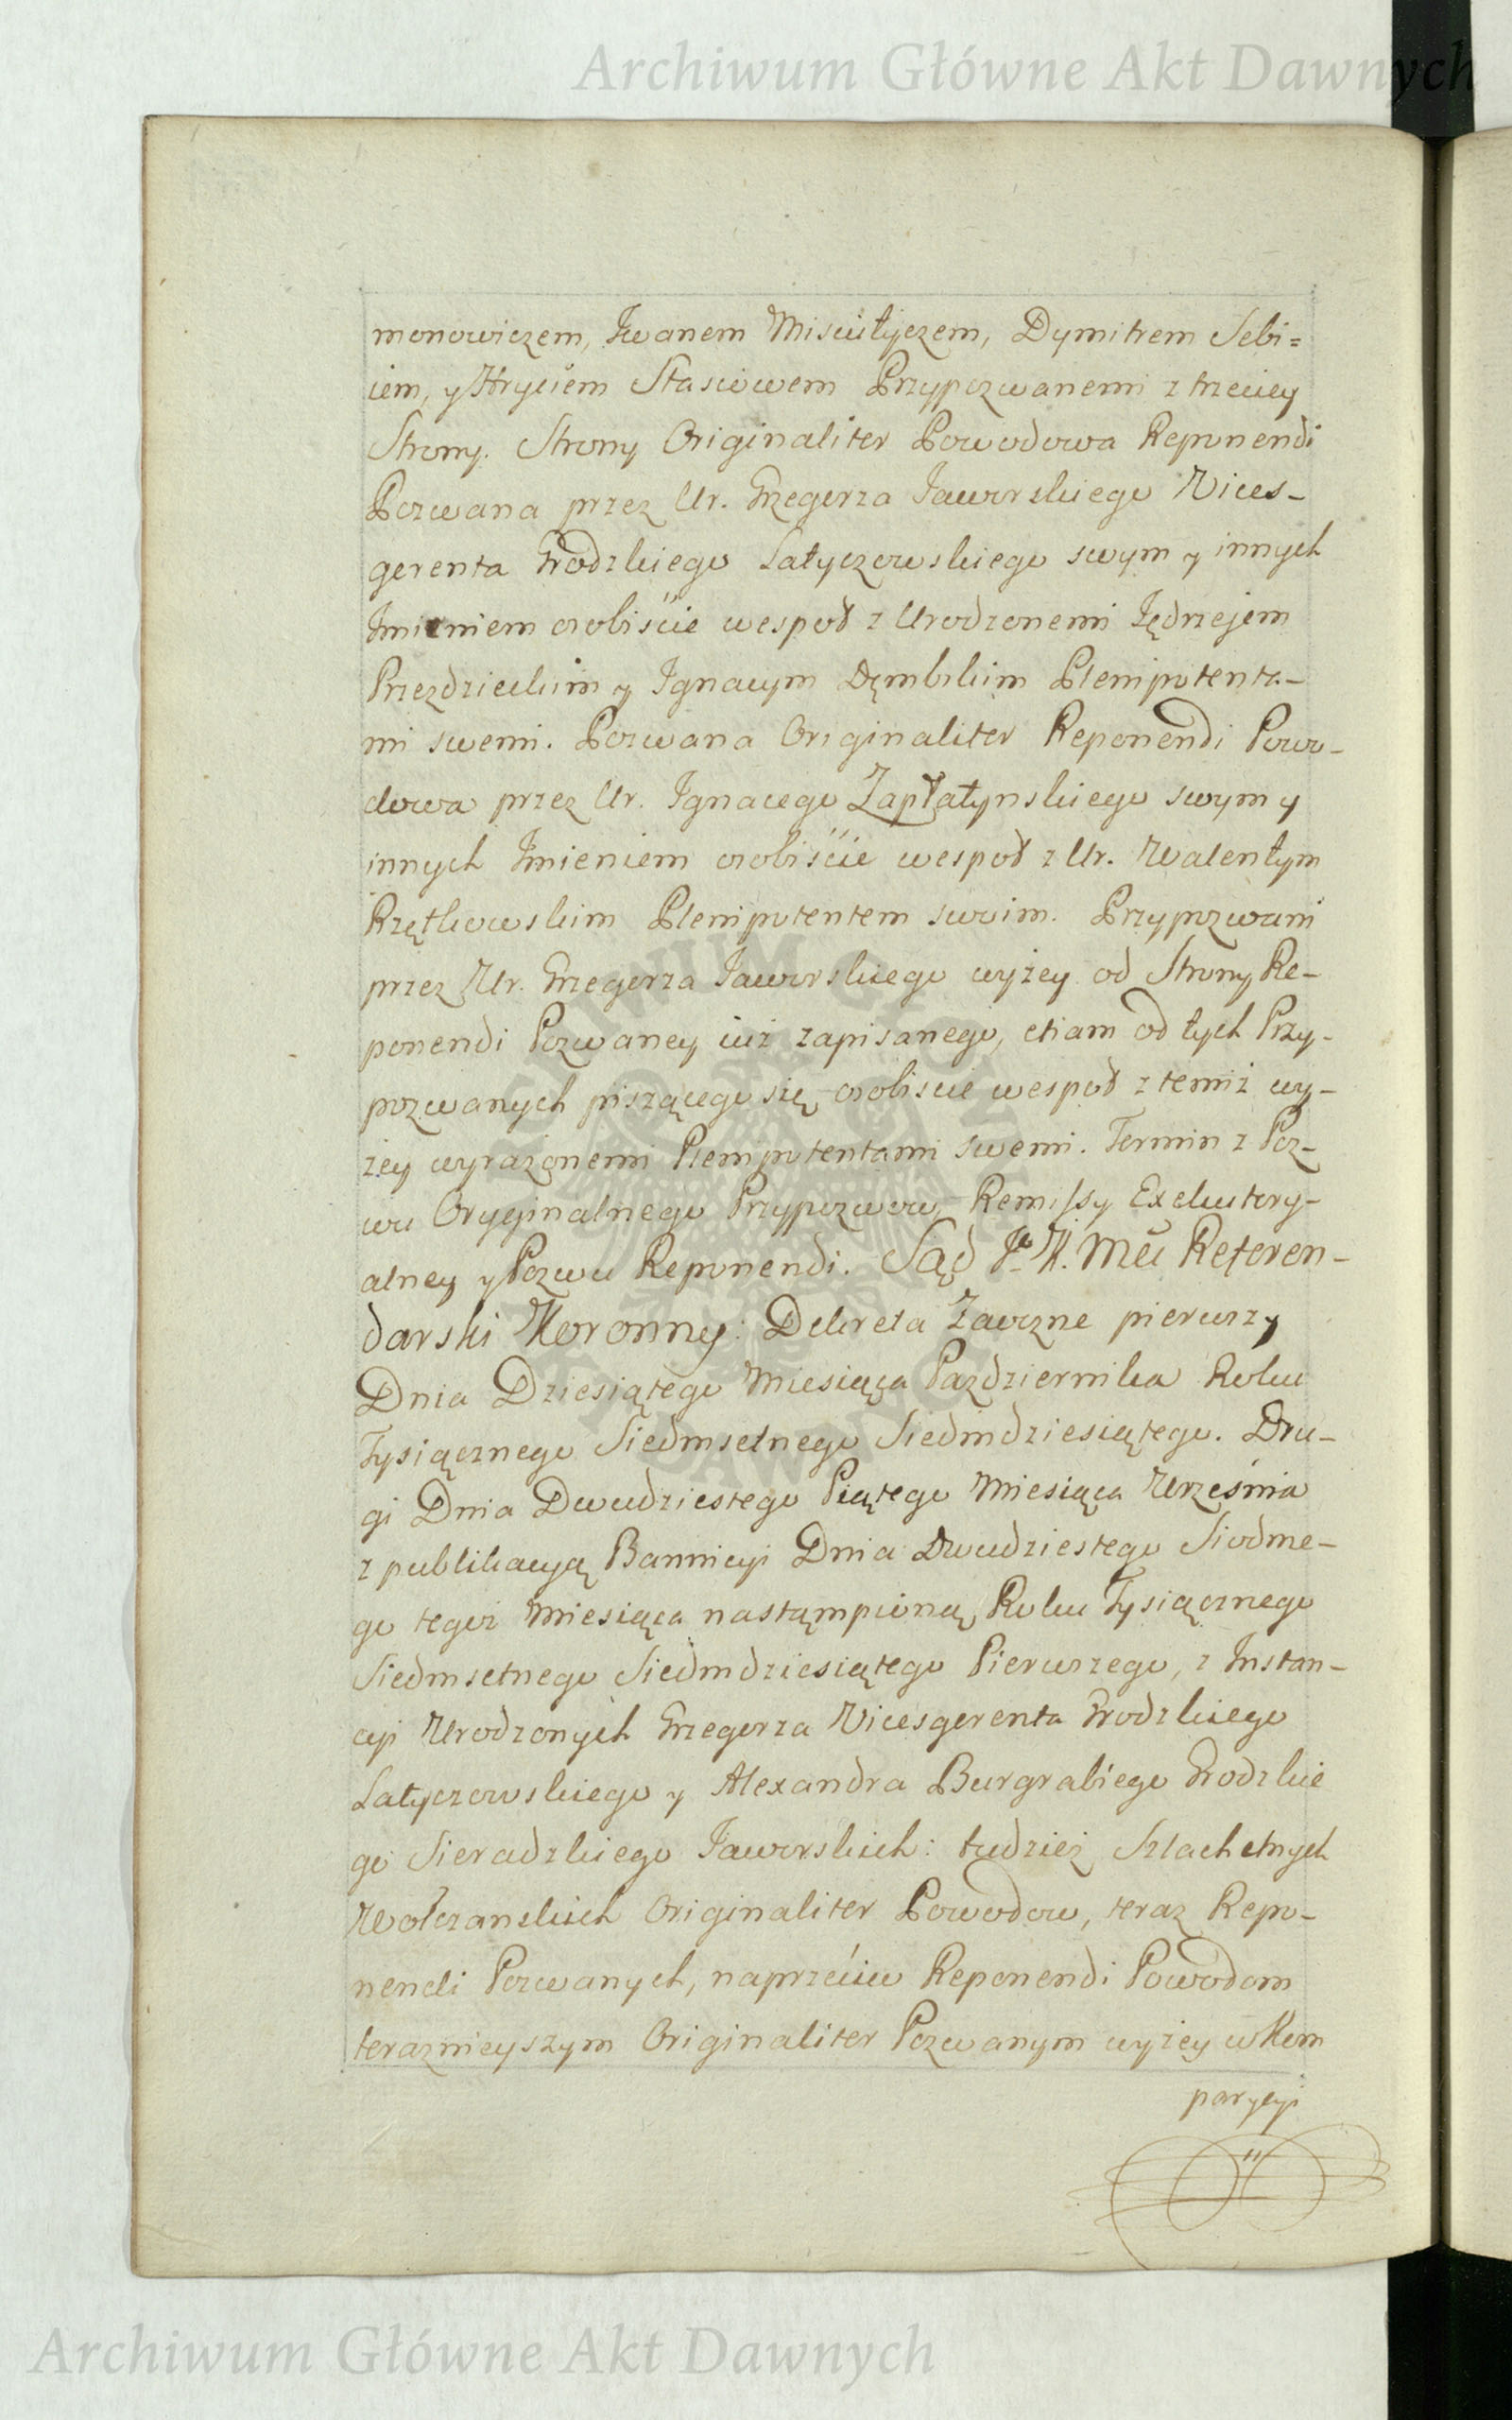 Archiwum Główne Akt Dawnych
monowiczem, Iwanem Misciutyczem, Dymitrem Sebi=
iem, y Hryciem Stasiowem Przypozwanemi z trzeciey
Strony. Strony Originaliter Powodowa Reponendi
Pozwana przez Ur. Grzegorza Jaworskiego Vices-
gerenta Grodzkiego Latyczowskiego swym y innych
Imieniem osobiście wespoł z Urodzonemi Jędrzejem
Przezdzieckim y Ignacym Dęmbskim Plenipotenta-
mi swemi. Pozwana Originaliter Reponendi Powo-
dowa przez Ur. Ignacego Zapłatynskiego swym y
innych Imieniem osobiście wespoł z Ur. Walentym
Rzętkowskim Plenipotentem swoim. Przypozwani
przez Ur. Grzegorza Jaworskiego wyżey od Strony Re-
ponendi Pozwaney iuż zapisanego, etiam od tych Przy-
pozwanych piszącego się osobiscie wespoł z temiż wy-
żey wyrażonemi Plenipotentami swemi. Termin z Poz-
wu Oryginalnego Przypozwow, Remissy Exekutory-
alney y Pozwu Reponendi. Sąd J. K. Mći Referen-
darski Koronny: Dekreta Zaoczne pierwszy
Dnia Dziesiątego Miesiąca Pazdziernika Roku
Tysiącznego Siedmsetnego Siedmdziesiątego. Dru-
gi Dnia Dwudziestego Piątego Miesiąca Września
z publikacyą Bannicyi Dnia Dwudziestego Siodme-
go tegoż Miesiąca nastąmpioną Roku Tysiącznego
Siedmsetnego Siedmdziesiątego Pierwszego, z Instan-
cyi Urodzonych Grzegorza Vicesgerenta Grodzkiego
Latyczowskiego y Alexandra Burgrabiego Grodzkie
go Sieradzkiego Jaworskich: tudzież Szlachetnych
Wołczanskich Originaliter Powodow, teraz Repo-
nendi Pozwanych, naprzeciw Reponendi Powodom
teraznieyszym Originaliter Pozwanym wyżey w Kom
parycyi
Archiwum Główne Akt Dawnych